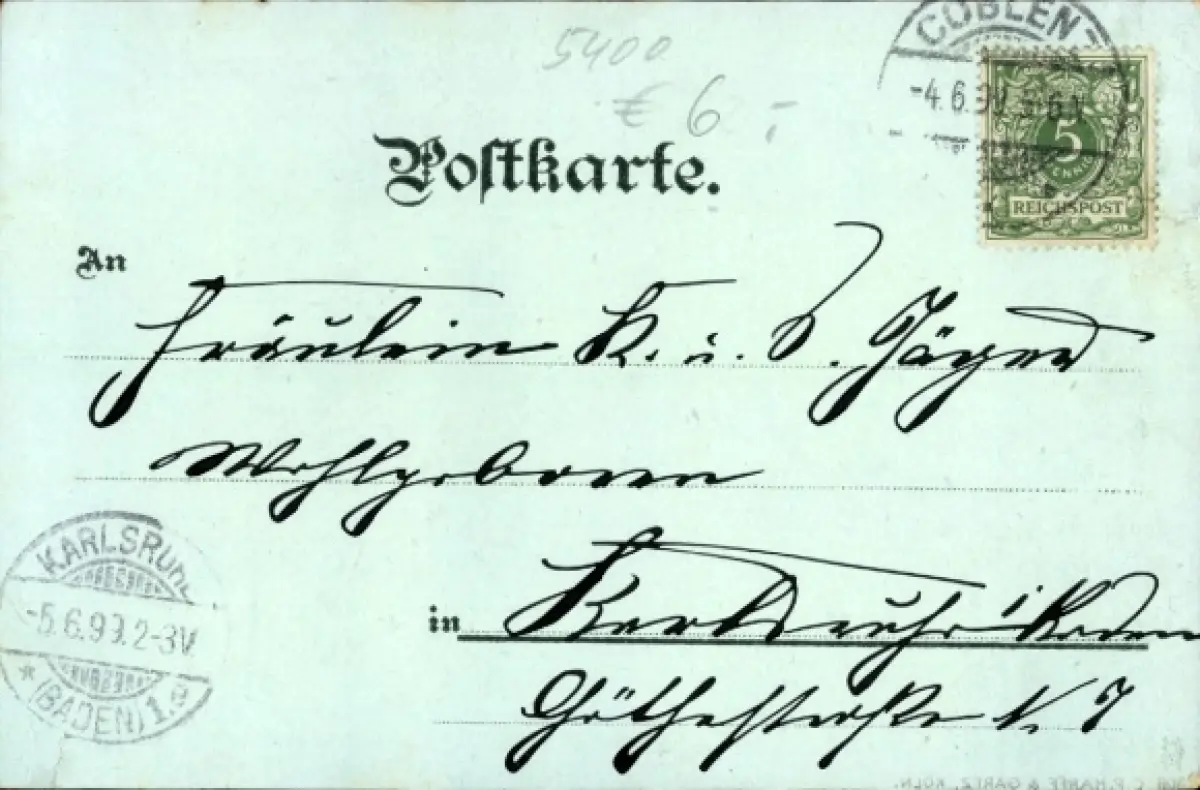 COBLEN
-4.6.99. 5-6.V
5400
€ 6.-
5
PFENNIG
REICHSPOST
Postkarte.
An
Fräulein K. u. S. Jäger
Wohlgeboren
in Karlsruhe i/Baden
Göthestraße N. 7
KARLSRUHE
-5.6.99.2-3V
* (BADEN) 1.
& GARTZ, KÖLN.